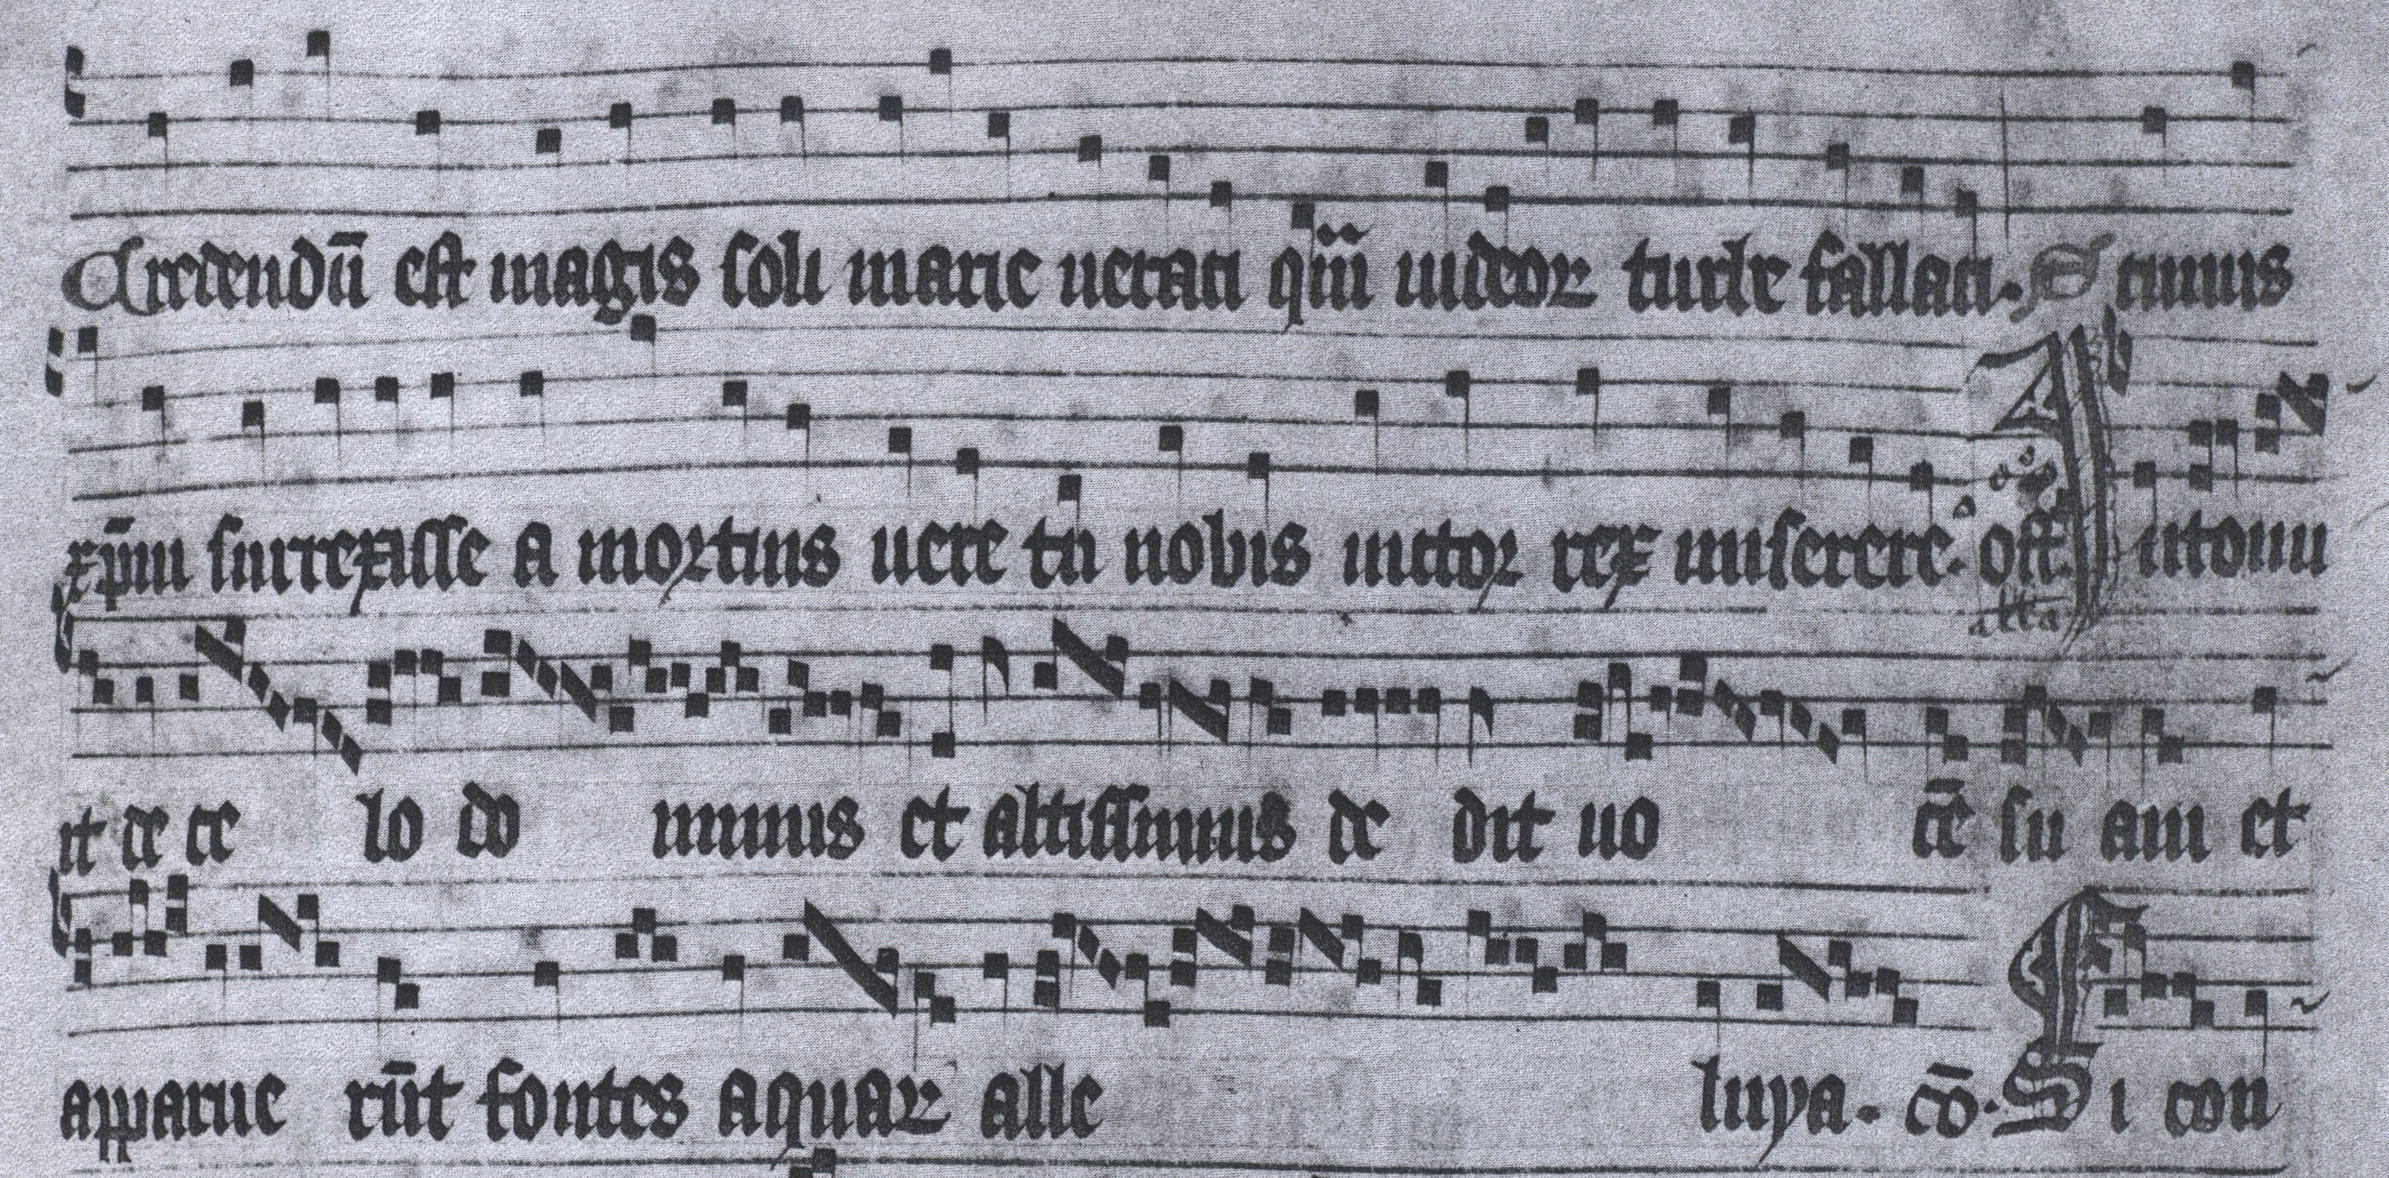 Credendū est magis soli marie veraci q̃ iudeoꝝ turbe fallaci. Scimus
xp̄m surrexisse a mortuis vere tu nobis victor rex miserere. off Intonu
it de ce lo do minus et altissimus de dit vo cē su am et
apparue rūt fontes aquaꝝ alle luya. cō. Si con